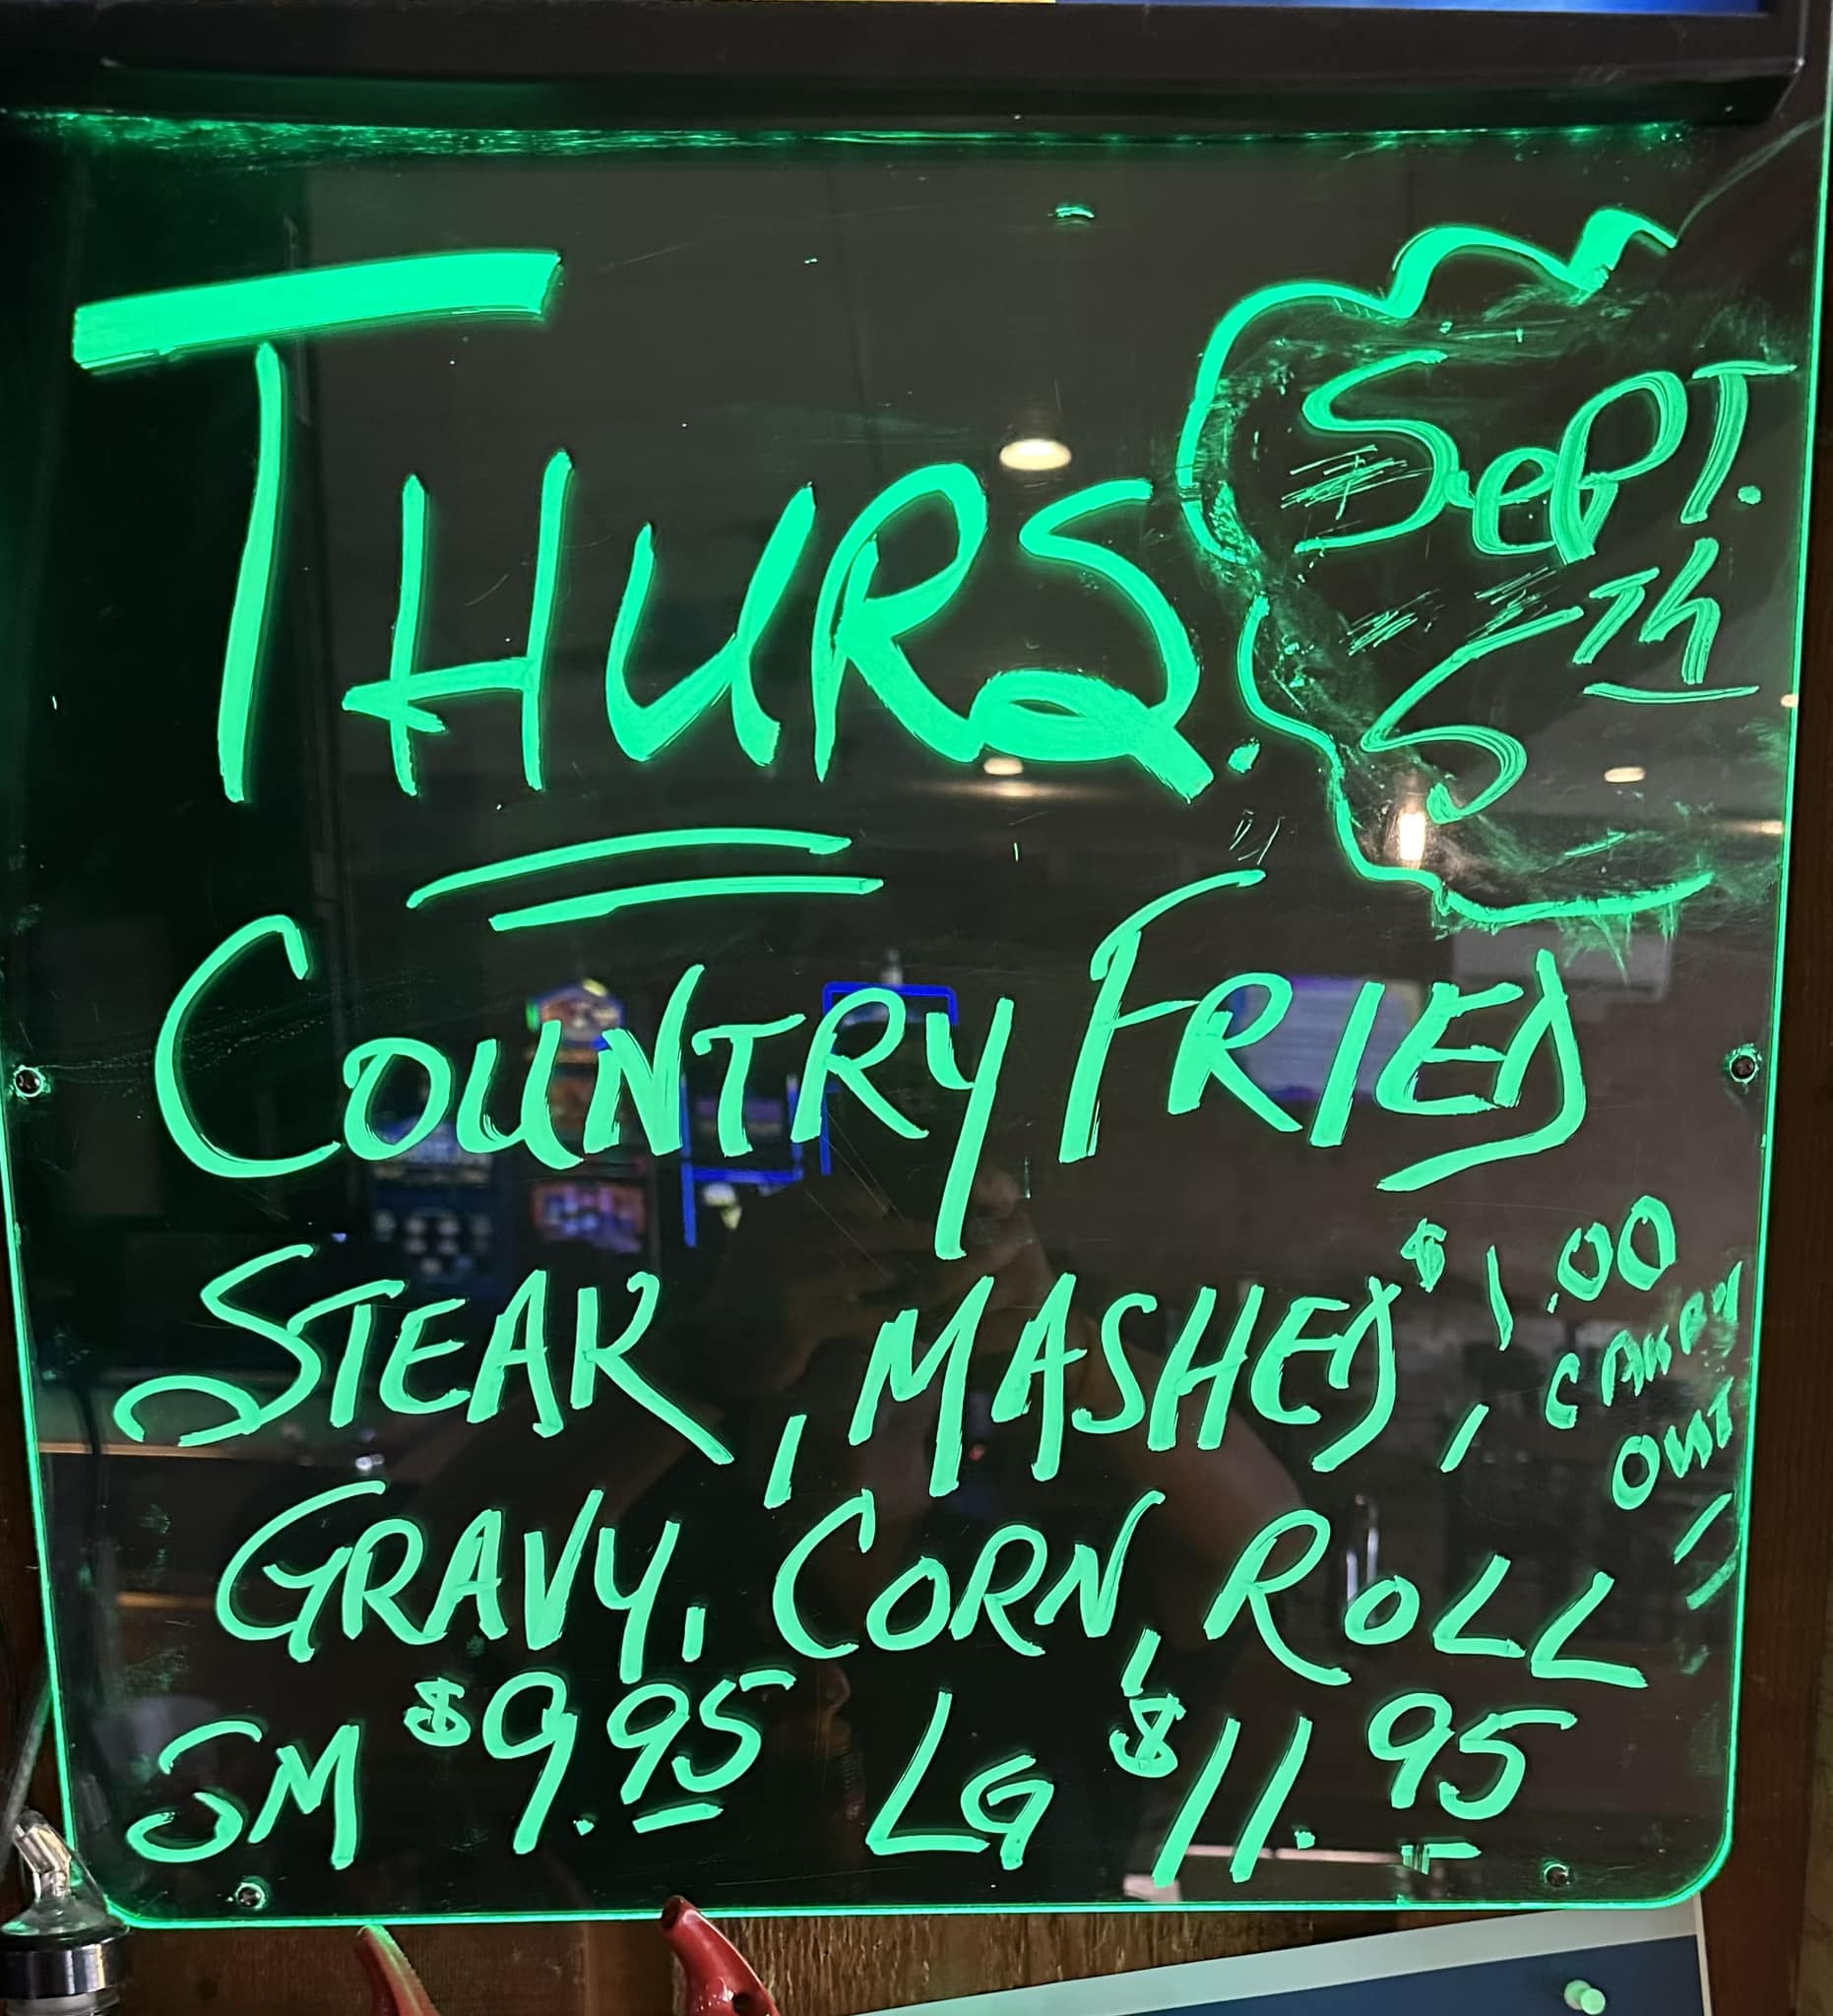 THURS.
SePT.
5Th
COUNTRY FRIED
STEAK, MASHED,
$1.00
CARRY
OUT
GRAVY, CORN, ROLL
SM $9.95 LG $11.95